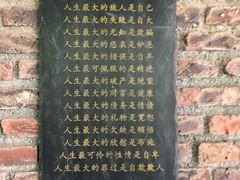 人生最大的敌人是自己
人生最大的失败是自大
人生最大的无知是欺骗
人生最大的悲哀是妒忌
人生最大的错误是自弃
人生最可佩服的是精进
人生最大的破产是绝望
人生最大的财富是健康
人生最大的债务是情债
人生最大的礼物是宽恕
人生最大的欠缺是悲智
人生最大的欣慰是布施
人生最可怜的性情是自卑
人生最大的罪过是自欺欺人